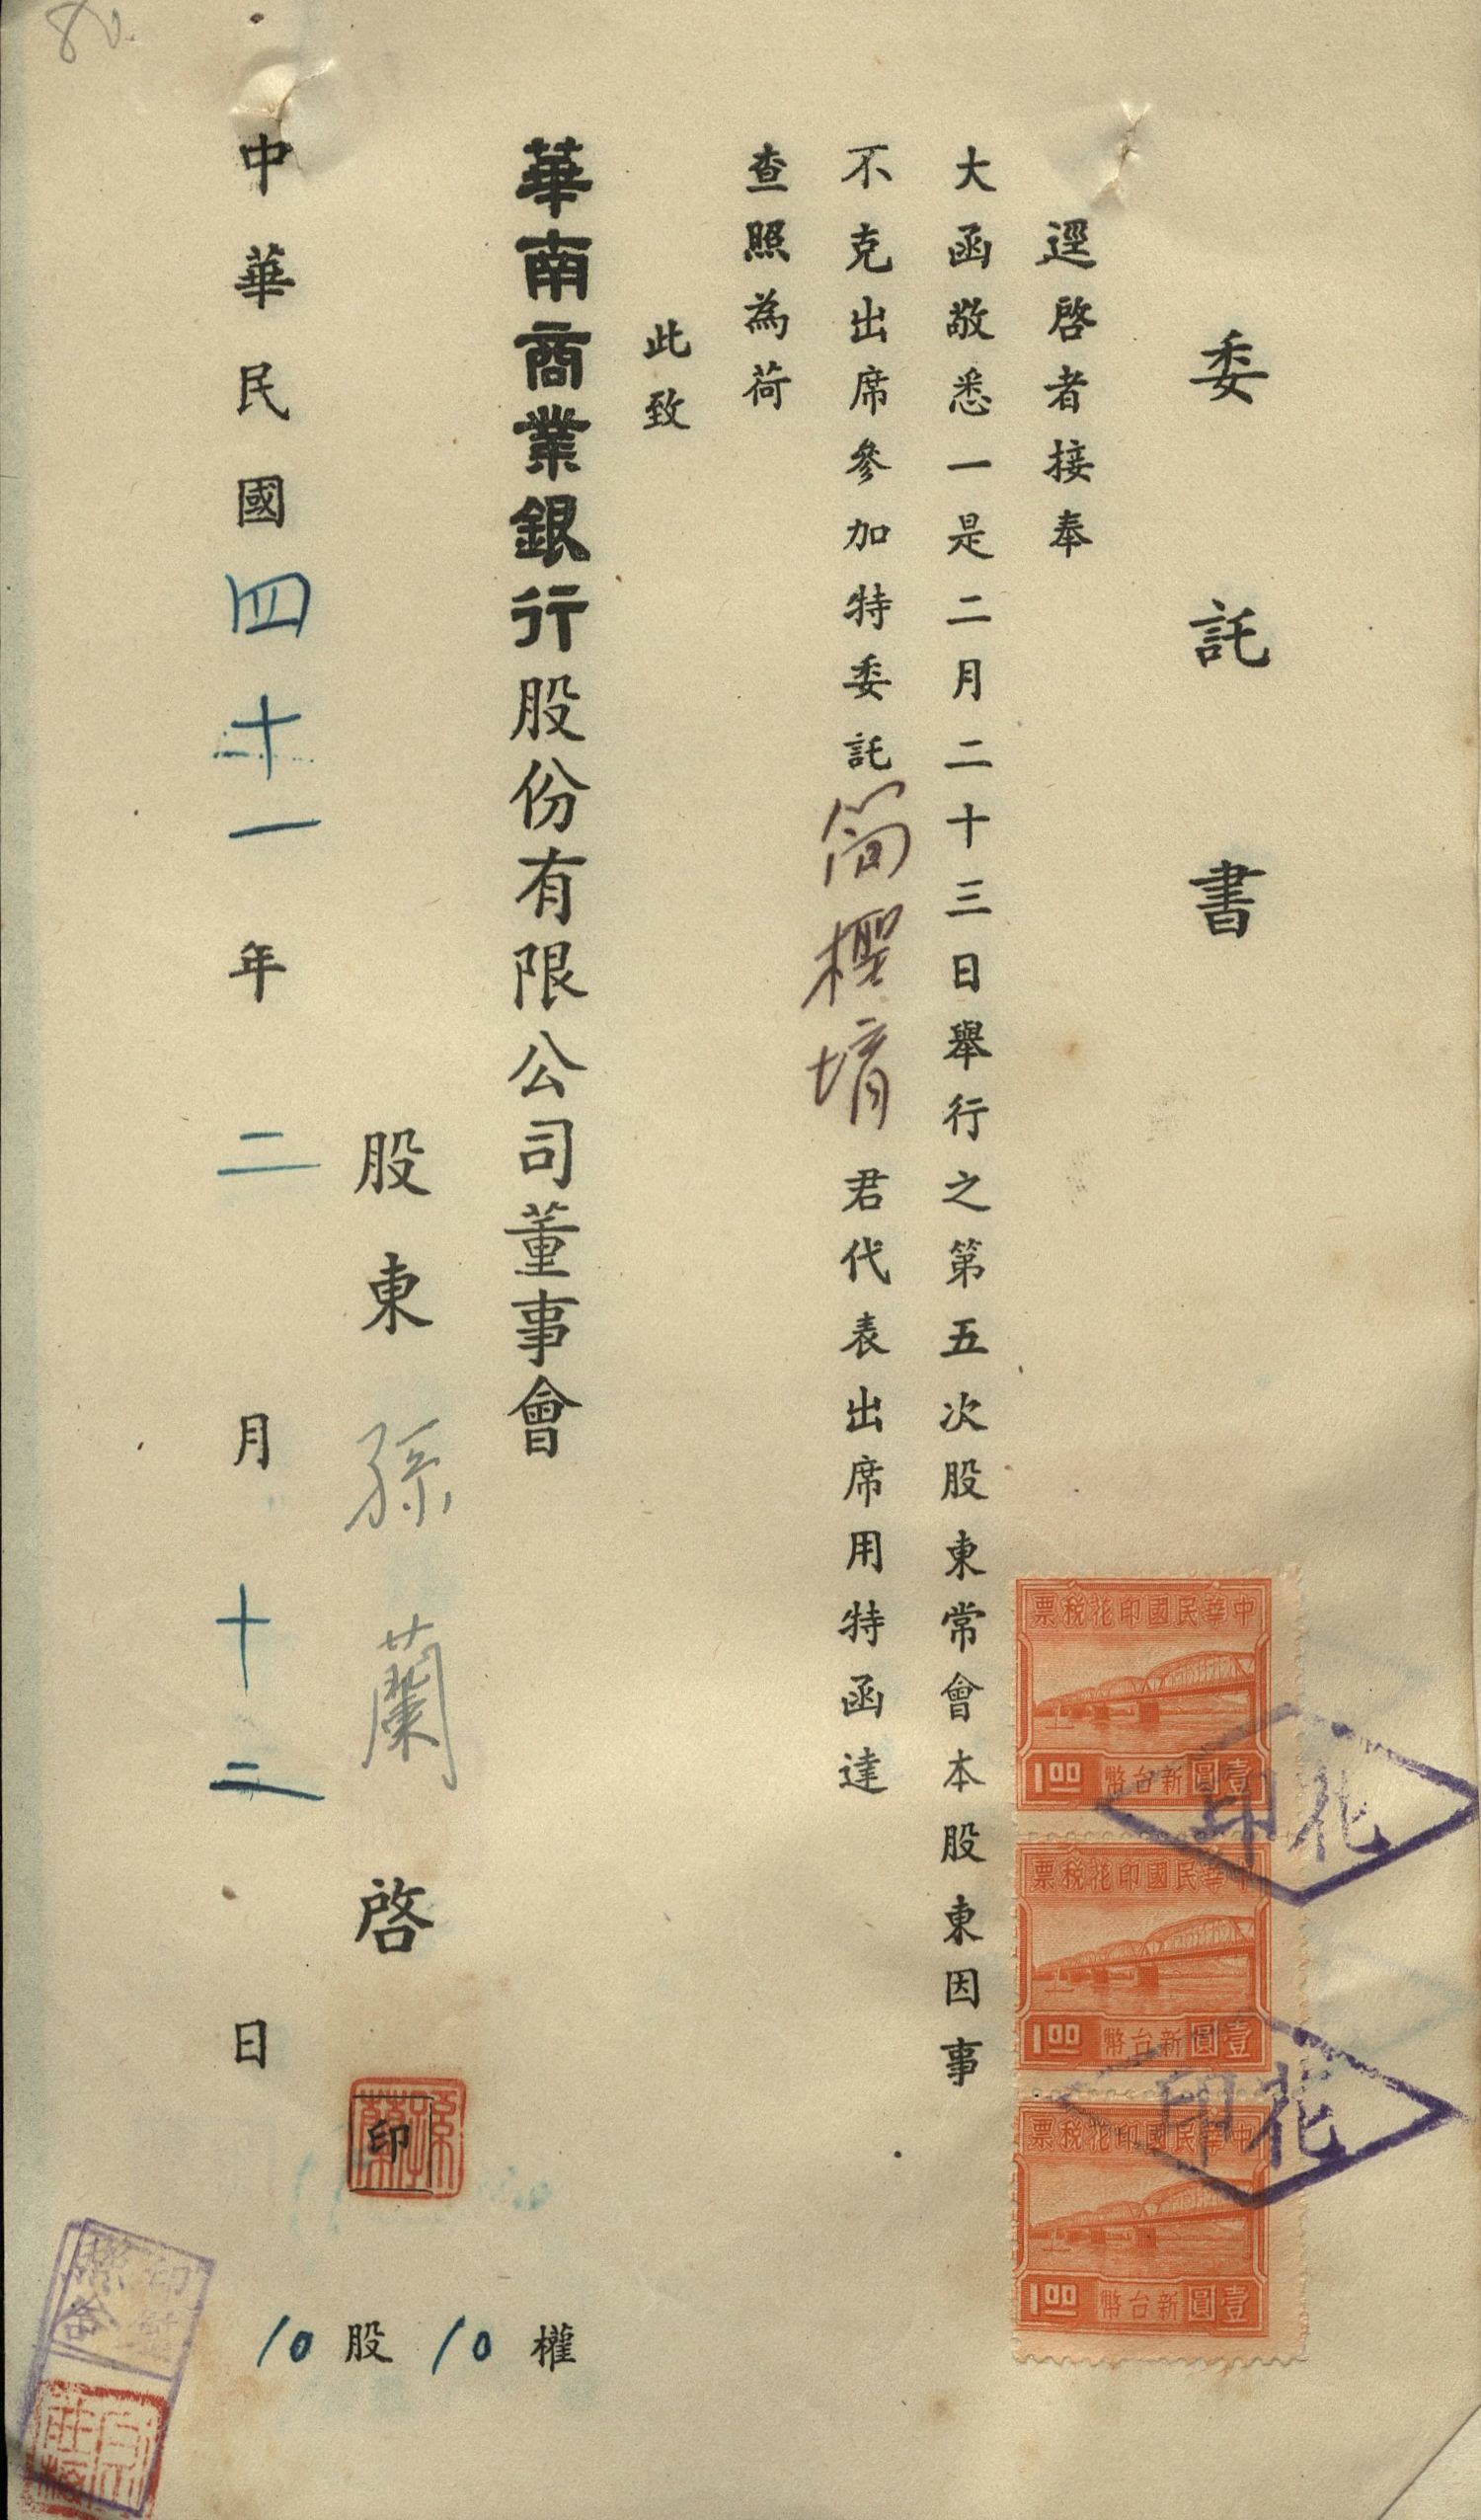 委託書
逕啓者接奉
大函敬悉一是二月二十三日舉行之第五次股東常會本股東因事
不克出席參加特委託簡樫堉君代表出席用特函達
查照為荷
此致
華南商業銀行股份有限公司董事會
股東孫蘭啓
印
中華民國四十一年二月十二日
10股10權
中華民國印花稅票
1.00新台幣壹圓
中華民國印花稅票
1.00新台幣壹圓
中華民國印花稅票
1.00新台幣壹圓
印花
印花
孫蘭
80